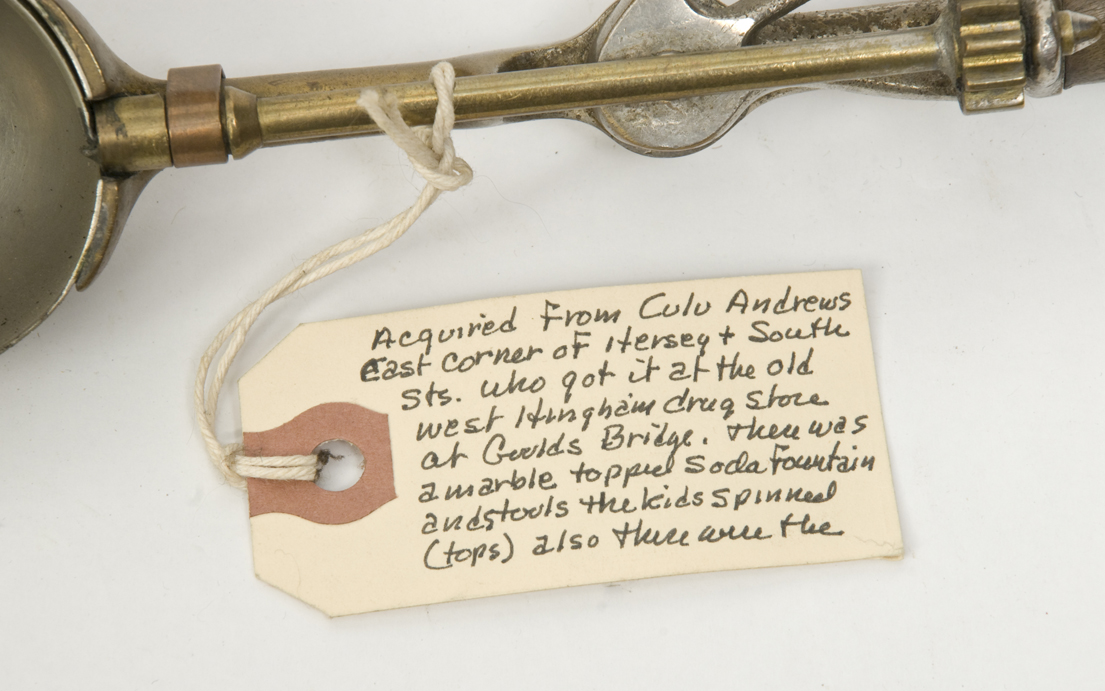 Acquired From Culu Andrews
East corner of Hersey + South
Sts. who got it at the old
west Hingham drug store
at Goolds Bridge. There was
a marble topped Soda Fountain
and stools the kids spinned
(tops) also there were the